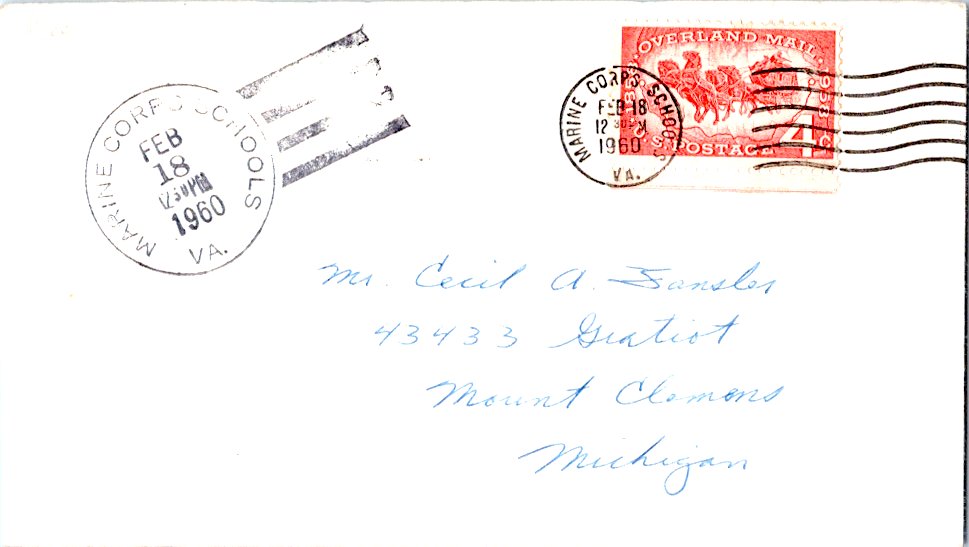 MARINE CORPS SCHOOLS
FEB
18
1230 PM
1960
VA.
MARINE CORPS SCHOOLS
FEB 18
12 30 PM
1960
VA.
OVERLAND MAIL
1958
4¢
U.S. POSTAGE
Mr. Cecil A. Fansler
43433 Gratiot
Mount Clemens
Michigan